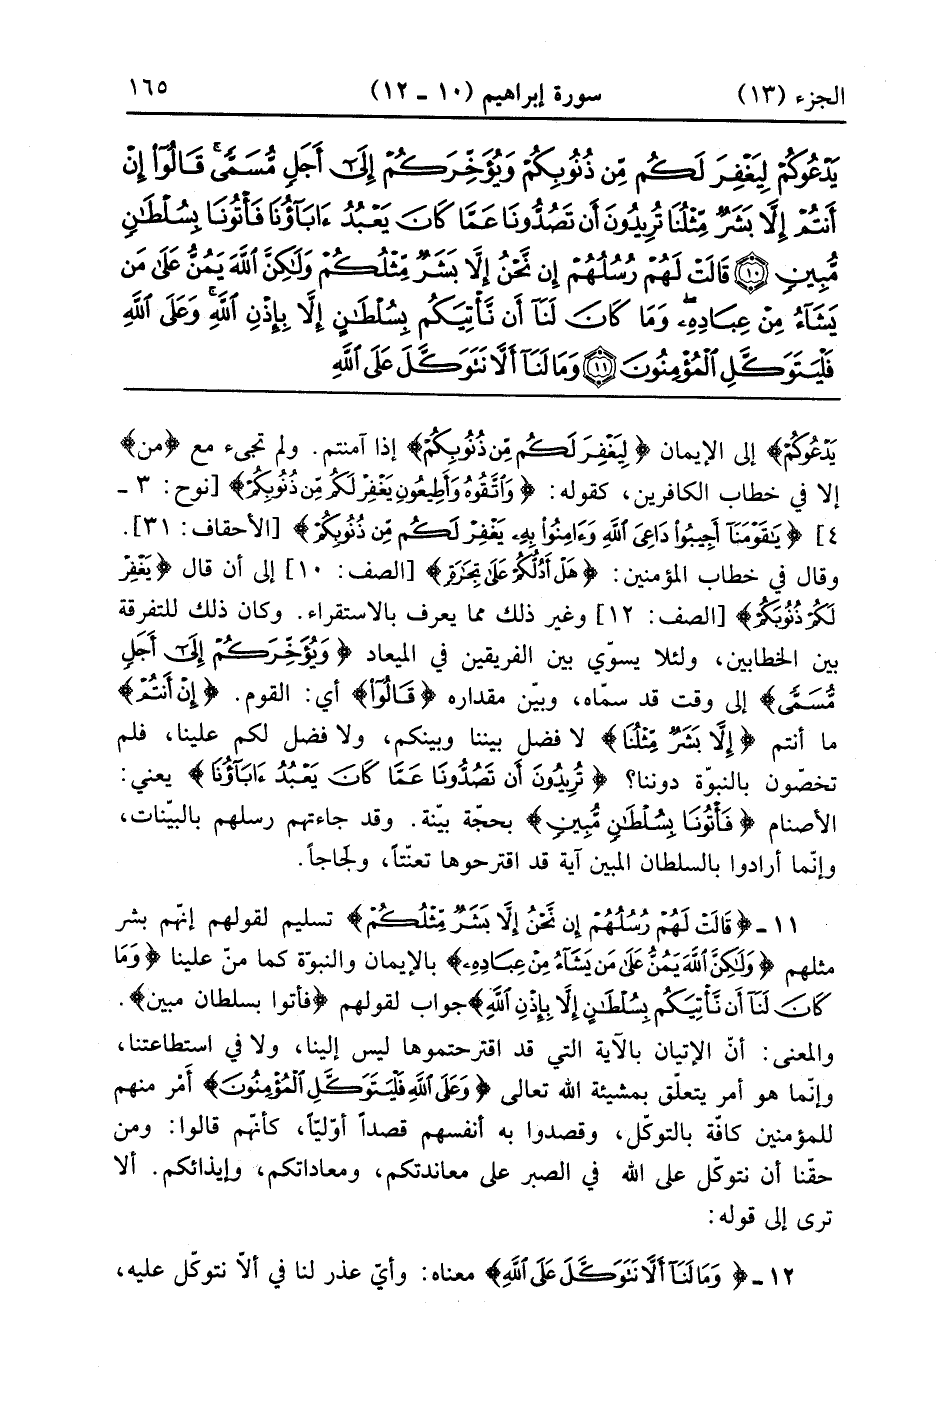 الجزء (١٣) سورة إبراهيم (١٠ - ١٢) ١٦٥
يَدْعُوكُمْ لِيَغْفِرَ لَكُم مِّن ذُنُوبِكُمْ وَيُؤَخِّرَكُمْ إِلَىٰٓ أَجَلٍ مُّسَمًّىۚ قَالُوٓا۟ إِنْ
أَنتُمْ إِلَّا بَشَرٌ مِّثْلُنَا تُرِيدُونَ أَن تَصُدُّونَا عَمَّا كَانَ يَعْبُدُ ءَابَآؤُنَا فَأْتُونَا بِسُلْطَٰنٍ
مُّبِينٍ ١٠ قَالَتْ لَهُمْ رُسُلُهُمْ إِن نَّحْنُ إِلَّا بَشَرٌ مِّثْلُكُمْ وَلَٰكِنَّ ٱللَّهَ يَمُنُّ عَلَىٰ مَن
يَشَآءُ مِنْ عِبَادِهِۦۖ وَمَا كَانَ لَنَآ أَن نَّأْتِيَكُم بِسُلْطَٰنٍ إِلَّا بِإِذْنِ ٱللَّهِۚ وَعَلَى ٱللَّهِ
فَلْيَتَوَكَّلِ ٱلْمُؤْمِنُونَ ١١ وَمَا لَنَآ أَلَّا نَتَوَكَّلَ عَلَى ٱللَّهِ
يَدْعُوكُمْ﴾ إلى الإيمان ﴿لِيَغْفِرَ لَكُم مِّن ذُنُوبِكُمْ﴾ إذا آمنتم. ولم تجىء مع ﴿من﴾
إلا في خطاب الكافرين، كقوله: ﴿وَٱتَّقُوهُ وَأَطِيعُونِ يَغْفِرْ لَكُم مِّن ذُنُوبِكُمْ﴾ [نوح: ٣ -
٤] ﴿يَٰقَوْمَنَآ أَجِيبُوا۟ دَاعِىَ ٱللَّهِ وَءَامِنُوا۟ بِهِۦ يَغْفِرْ لَكُم مِّن ذُنُوبِكُمْ﴾ [الأحقاف: ٣١].
وقال في خطاب المؤمنين: ﴿هَلْ أَدُلُّكُمْ عَلَىٰ تِجَٰرَةٍ﴾ [الصف: ١٠] إلى أن قال ﴿يَغْفِرْ
لَكُمْ ذُنُوبَكُمْ﴾ [الصف: ١٢] وغير ذلك مما يعرف بالاستقراء. وكان ذلك للتفرقة
بين الخطابين، ولئلا يسوّي بين الفريقين في الميعاد ﴿وَيُؤَخِّرَكُمْ إِلَىٰٓ أَجَلٍ
مُّسَمًّى﴾ إلى وقت قد سمّاه، وبيّن مقداره ﴿قَالُوٓا۟﴾ أي: القوم. ﴿إِنْ أَنتُمْ﴾
ما أنتم ﴿إِلَّا بَشَرٌ مِّثْلُنَا﴾ لا فضل بيننا وبينكم، ولا فضل لكم علينا، فلم
تخصّون بالنبوّة دوننا؟ ﴿تُرِيدُونَ أَن تَصُدُّونَا عَمَّا كَانَ يَعْبُدُ ءَابَآؤُنَا﴾ يعني:
الأصنام ﴿فَأْتُونَا بِسُلْطَٰنٍ مُّبِينٍ﴾ بحجّة بيّنة. وقد جاءتهم رسلهم بالبيّنات،
وإنّما أرادوا بالسلطان المبين آية قد اقترحوها تعنّتاً، ولجاجاً.
١١ - ﴿قَالَتْ لَهُمْ رُسُلُهُمْ إِن نَّحْنُ إِلَّا بَشَرٌ مِّثْلُكُمْ﴾ تسليم لقولهم إنّهم بشر
مثلهم ﴿وَلَٰكِنَّ ٱللَّهَ يَمُنُّ عَلَىٰ مَن يَشَآءُ مِنْ عِبَادِهِۦ﴾ بالإيمان والنبوّة كما منّ علينا ﴿وَمَا
كَانَ لَنَآ أَن نَّأْتِيَكُم بِسُلْطَٰنٍ إِلَّا بِإِذْنِ ٱللَّهِ﴾ جواب لقولهم ﴿فأتوا بسلطان مبين﴾.
والمعنى: أنّ الإتيان بالآية التي قد اقترحتموها ليس إلينا، ولا في استطاعتنا،
وإنّما هو أمر يتعلّق بمشيئة الله تعالى ﴿وَعَلَى ٱللَّهِ فَلْيَتَوَكَّلِ ٱلْمُؤْمِنُونَ﴾ أَمْر منهم
للمؤمنين كافّة بالتوكّل، وقصدوا به أنفسهم قصداً أوّليّاً، كأنّهم قالوا: ومن
حقّنا أن نتوكّل على الله في الصبر على معاندتكم، ومعاداتكم، وإيذائكم. ألا
ترى إلى قوله:
١٢ - ﴿وَمَا لَنَآ أَلَّا نَتَوَكَّلَ عَلَى ٱللَّهِ﴾ معناه: وأيّ عذر لنا في ألاّ نتوكّل عليه،